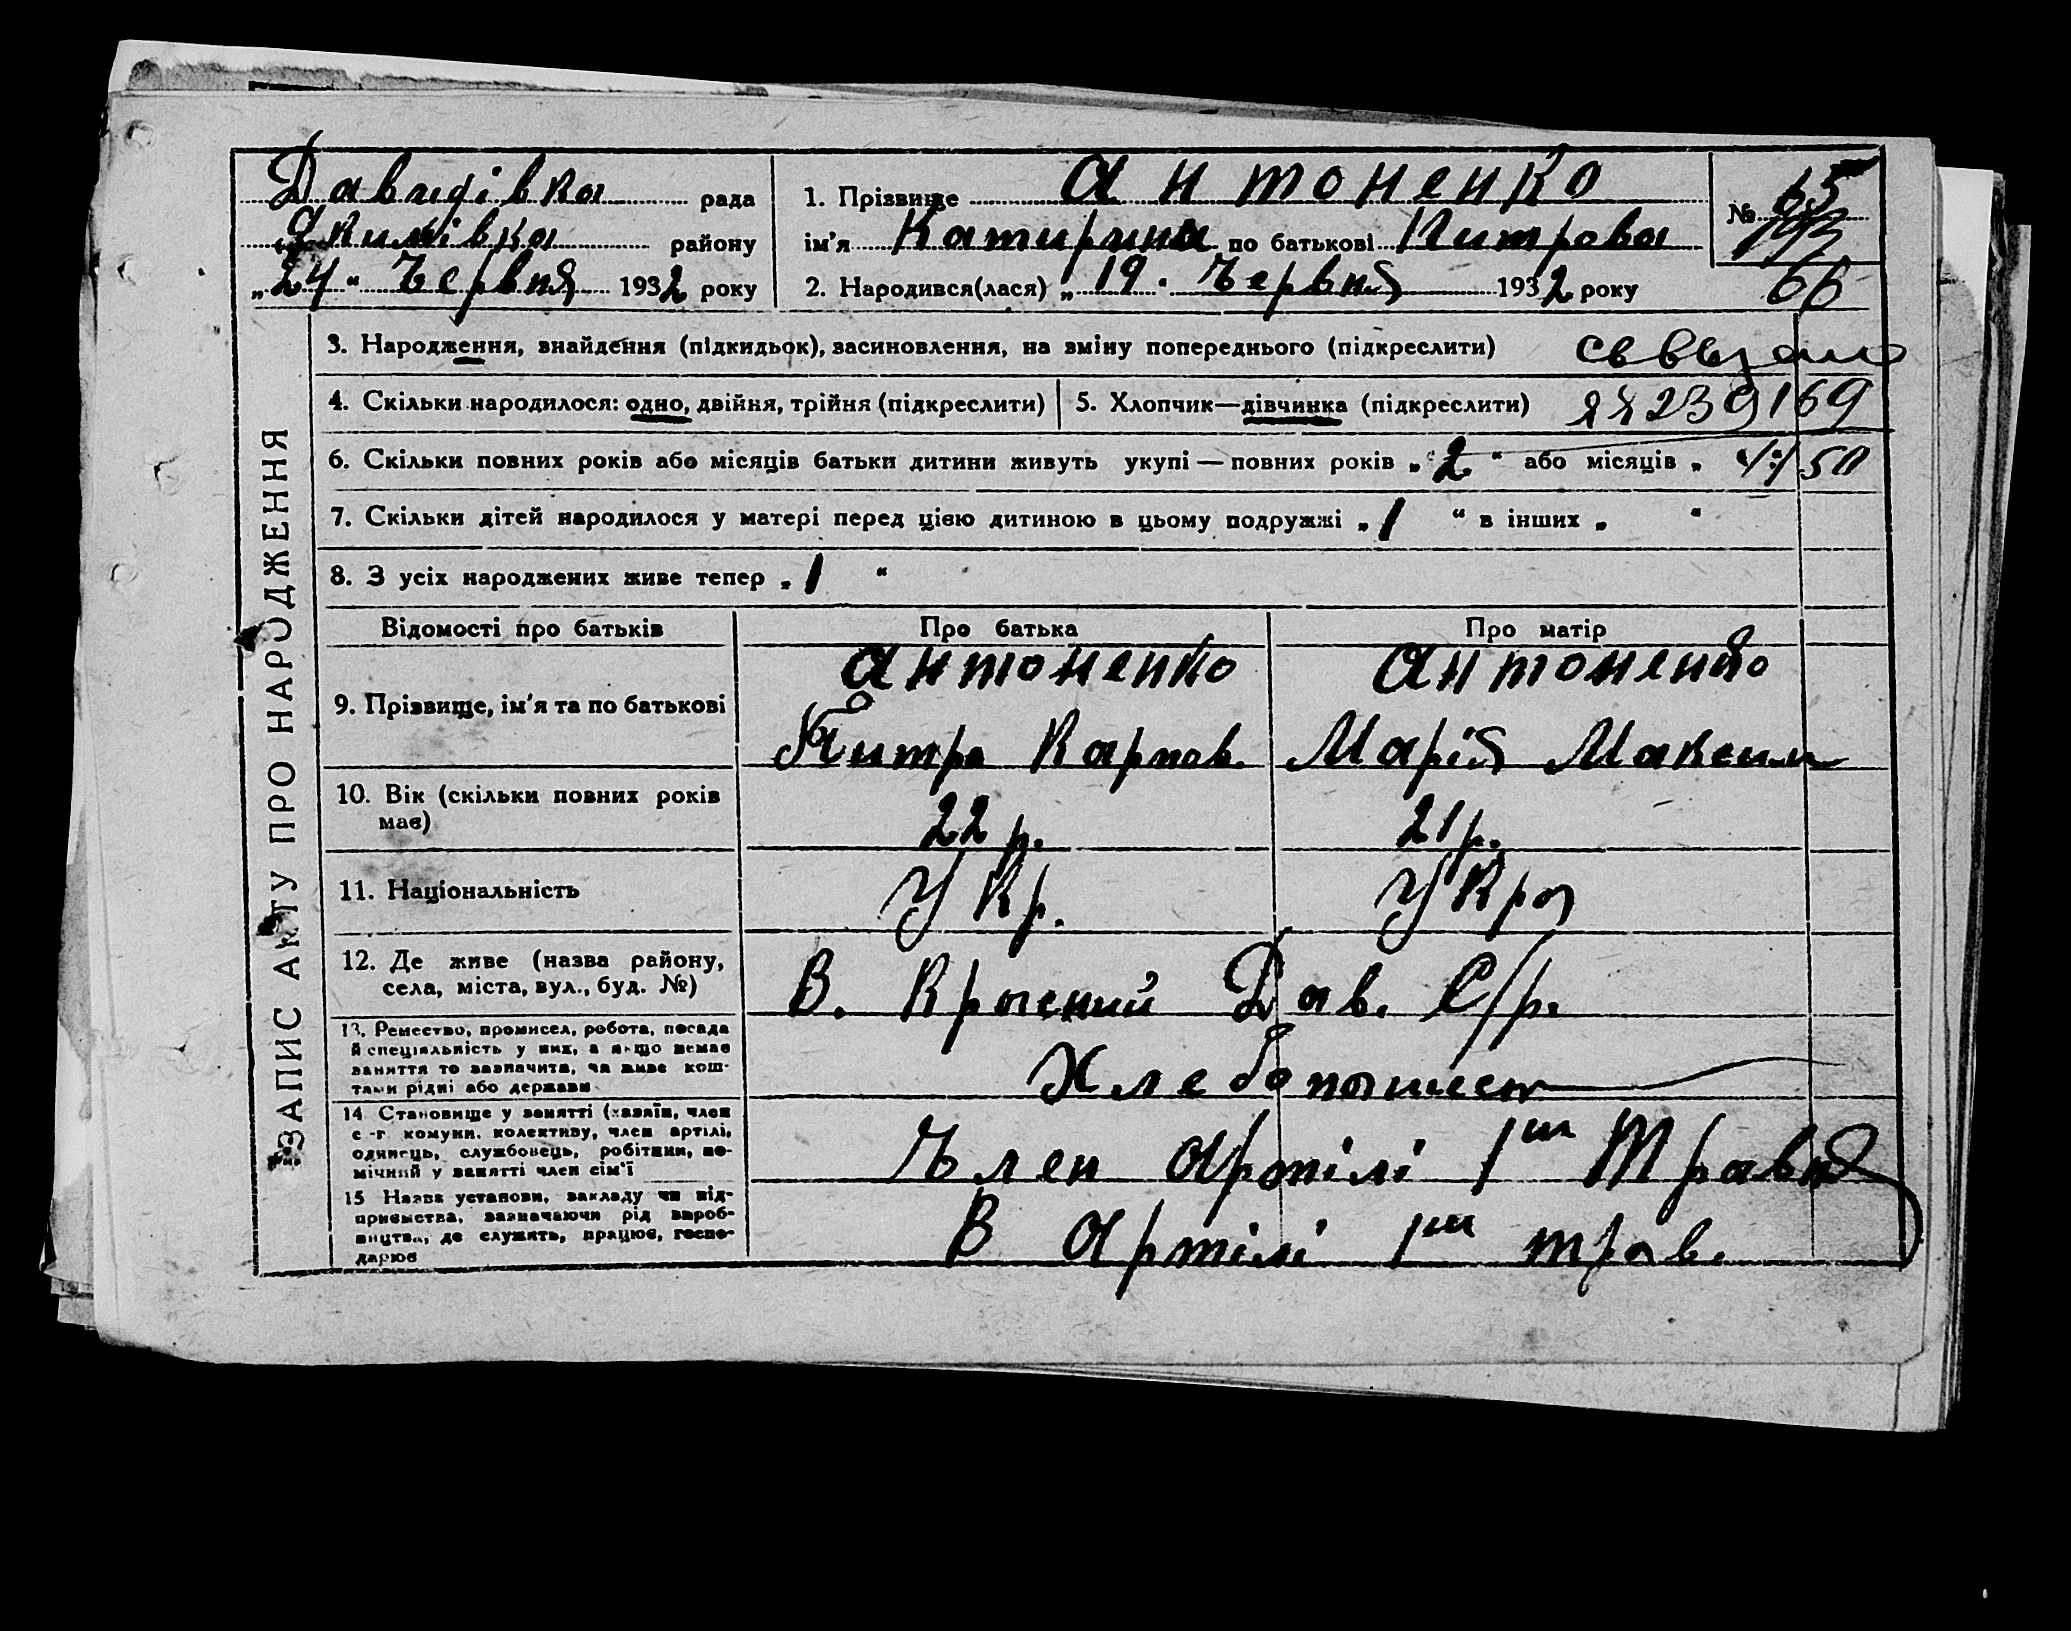 Давидівка рада
Якимівка району
„24“ Червня 1932 року
1. Прізвище Антоненко
ім'я Катирина по батькові Питрова
2. Народився(лася) „19“ Червня 1932 року
№ 65
193
66
ЗАПИС АКТУ ПРО НАРОДЖЕННЯ
3. Народження, знайдення (підкидьок), засиновлення, на зміну попереднього (підкреслити)
4. Скільки народилося: одно, двійня, трійня (підкреслити)
5. Хлопчик—дівчинка (підкреслити) 239169
6. Скільки повних років або місяців батьки дитини живуть укупі — повних років „2“ або місяців „ 50
7. Скільки дітей народилося у матері перед цією дитиною в цьому подружжі „1 “ в інших „ “
8. З усіх народжених живе тепер „1 “
Відомості про батьків Про батька Про матір
9. Прізвище, ім'я та по батькові
Антоненко Антоненко
Питро Карпов. Марія Максим
10. Вік (скільки повних років
має)
22 р. 21 р.
11. Національність Укр. Укра
12. Де живе (назва району,
села, міста, вул., буд. №)
В. Красний Дав. С/р.
13. Ремество, промисел, робота, посада
й спеціяльність у них, а якщо немає
заняття то зазначити, чи живе кош-
тами рідні або держави
Хлебопашест
14. Становище у занятті (хазяїн, член
с.-г. комуни, колективу, член артілі,
одинець, службовець, робітник, по-
мічний у занятті член сім'ї
Член Артілі 1ш Травня
15 Назва установи, закладу чи під-
приємства, зазначаючи рід вироб-
ництва, де служить, працює, госпо-
дарює
В Артілі 1ш трав.